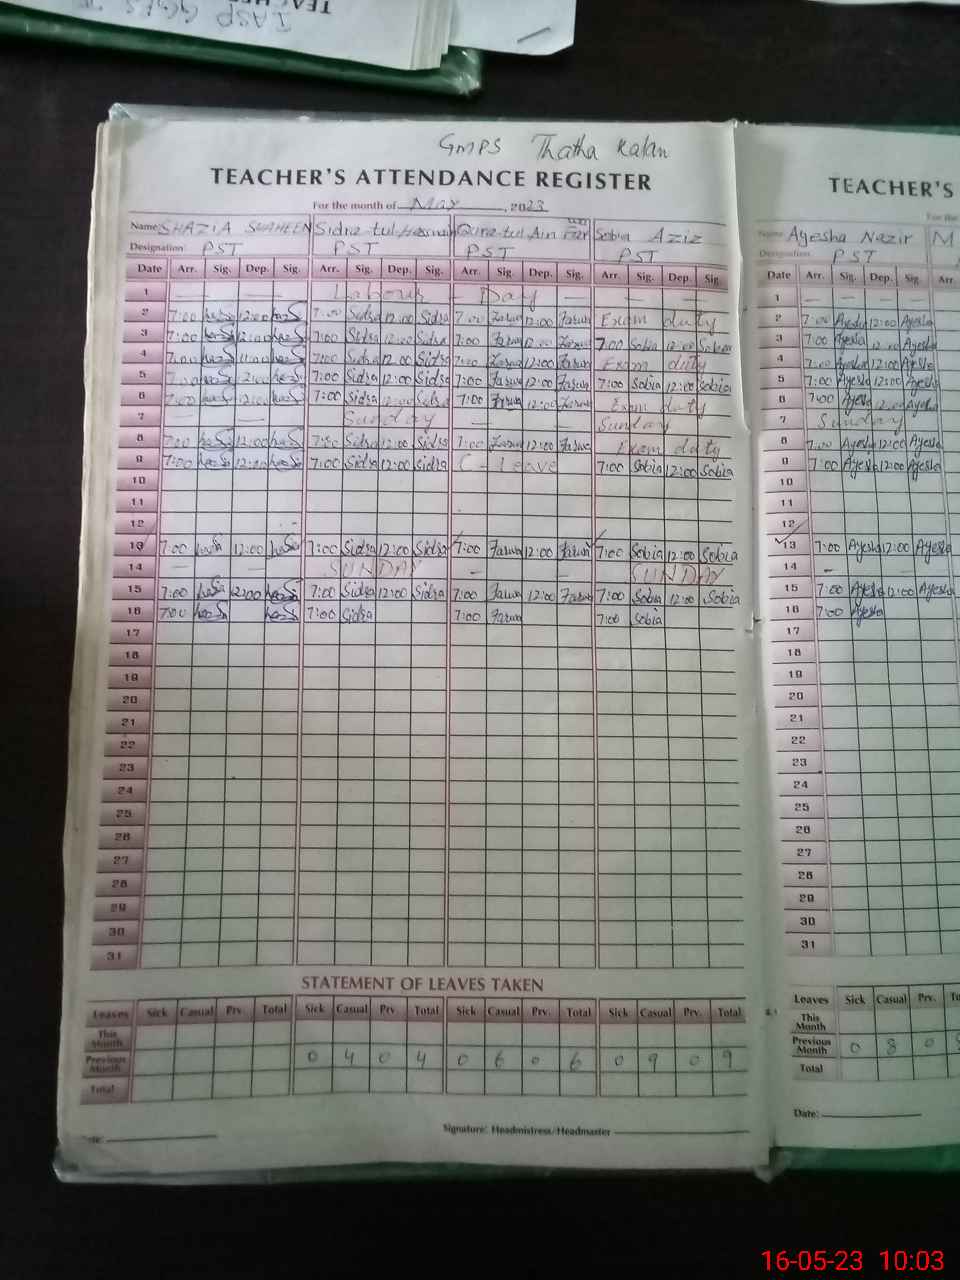 IASP GGES T
TEACHE
GMPS Thatha Kalan
TEACHER'S ATTENDANCE REGISTER
For the month of May, 2023
Name SHAZIA SHAHEEN Sidra-tul-Hasnain Qurra-tul-Ain Sobia Aziz
Designation: PST PST PST PST
Date Arr. Sig. Dep. Sig. Arr. Sig. Dep. Sig. Arr. Sig. Dep. Sig. Arr. Sig. Dep. Sig.
1 — — Labour - Day — — —
2 7:00 12:00 7:00 Sidra 12:00 Sidra 7:00 Farwa 12:00 Farwa Exam duty
3 7:00 12:00 7:00 Sidra 12:00 Sidra 7:00 Farwa 12:00 Farwa 7:00 Sobia 12:00 Sobia
4 7:00 7:00 Sidra 12:00 Sidra 7:00 Farwa 12:00 Farwa Exam duty
5 7:00 12:00 7:00 Sidra 12:00 Sidra 7:00 Farwa 12:00 Farwa 7:00 Sobia 12:00 Sobia
6 7:00 12:00 7:00 Sidra 12:00 Sidra 7:00 Farwa 12:00 Farwa Exam duty
7 — — Sunday — — Sunday
8 7:00 12:00 7:00 Sidra 12:00 Sidra 7:00 Farwa 12:00 Farwa Exam duty
9 7:00 12:00 7:00 Sidra 12:00 Sidra C - Leave 7:00 Sobia 12:00 Sobia
10
11
12
13 7:00 12:00 7:00 Sidra 12:00 Sidra 7:00 Farwa 12:00 Farwa 7:00 Sobia 12:00 Sobia
14 — — SUNDAY — — SUNDAY
15 7:00 12:00 7:00 Sidra 12:00 Sidra 7:00 Farwa 12:00 Farwa 7:00 Sobia 12:00 Sobia
16 7:00 7:00 Sidra 7:00 Farwa 7:00 Sobia
17
18
19
20
21
22
23
24
25
26
27
28
29
30
31
STATEMENT OF LEAVES TAKEN
Leaves Sick Casual Prv. Total Sick Casual Prv Total Sick Casual Prv. Total Sick Casual Prv. Total
This Month
Previous Month 0 4 0 4 0 6 0 6 0 9 0 9
Total
Signature: Headmistress/Headmaster
TEACHER'S
For the
Name Ayesha Nazir M
Designation: PST
Date Arr. Sig. Dep. Sig. Arr.
1 — — — —
2 7:00 Ayesha 12:00 Ayesha
3 7:00 Ayesha 12:00 Ayesha
4 7:00 Ayesha 12:00 Ayesha
5 7:00 Ayesha 12:00 Ayesha
6 7:00 Ayesha 12:00 Ayesha
7 Sunday
8 7:00 Ayesha 12:00 Ayesha
9 7:00 Ayesha 12:00 Ayesha
10
11
12
13 7:00 Ayesha 12:00 Ayesha
14
15 7:00 Ayesha 12:00 Ayesha
16 7:00 Ayesha
17
18
19
20
21
22
23
24
25
26
27
28
29
30
31
Leaves Sick Casual Prv. To
This Month
Previous Month 0 8 0
Total
Date:
16-05-23 10:03